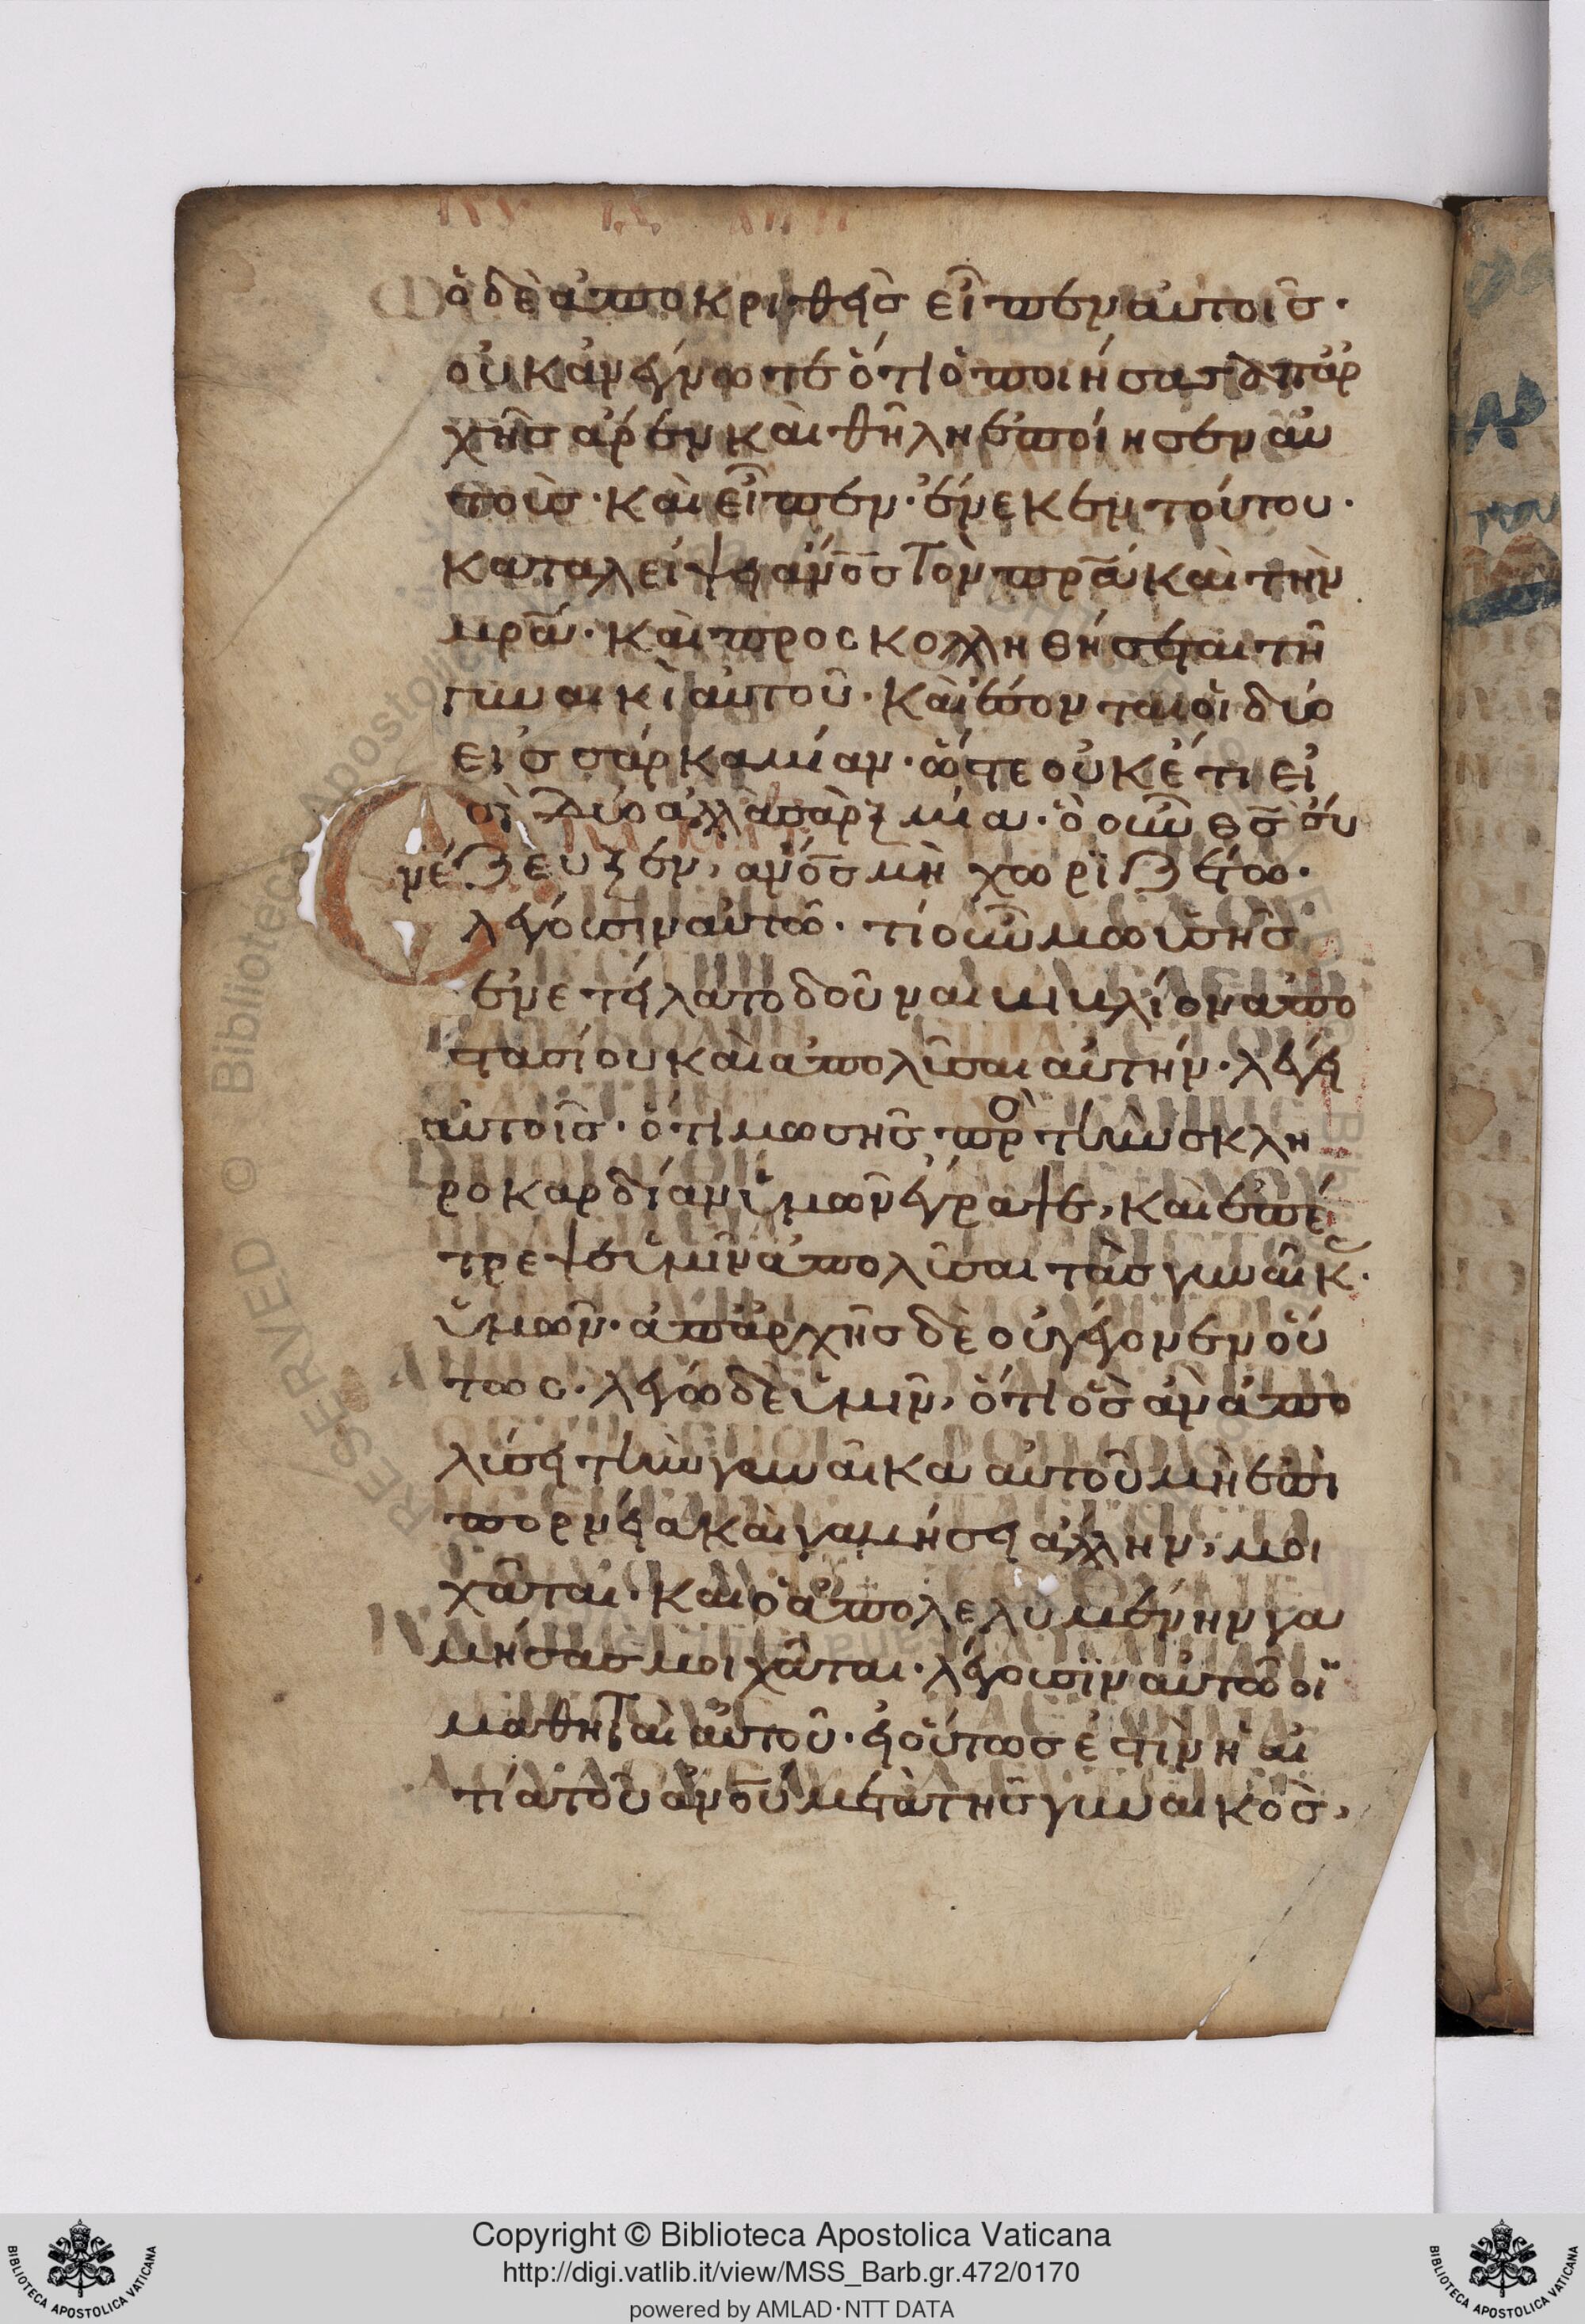 ὁ δὲ ἀποκριθεὶς εἶπεν αὐτοῖς·
οὐκ ἀνέγνωτε ὅτι ὁ ποιήσας ἀπ' ἀρ
χῆς ἄρσεν καὶ θῆλη ἐποίησεν αὐ
τοὺς· καὶ εἶπεν· ἕνεκεν τούτου·
καταλείψει ἄν̅ο̅ς τὸν πρ̅α̅ καὶ τὴν
μρ̅α̅· καὶ προσκολληθήσεται τῇ
γυναικὶ αὐτοῦ· καὶ ἔσονται οἱ δύο
εἰς σάρκα μίαν· ὥστε οὐκέτι εἰ
σὶ δύο ἀλλὰ σὰρξ μία· ὃ οὖν θ̅ς̅ συ
νέζευξεν, ἄν̅ο̅ς μὴ χωριζέτω·
λέγουσιν αὐτῶ· τί οὖν μωυσῆς
ἐνετείλατο δοῦναι βιβλίον ἀπο
στασίου καὶ ἀπολῦσαι αὐτήν· λέγει
αὐτοῖς· ὅτι μωσῆς πρὸ τὴν σκλη
ροκαρδίαν ὑμῶν ἔγραψε, καὶ ἐπέ
τρεψε ὑμῖν ἀπολῦσαι τὰς γυναῖκ
ὑμῶν· ἀπ' ἀρχῆς δὲ οὐ γέγονεν οὕ
τως· λέγω δὲ ὑμῖν, ὅτι ὃς ἂν ἀπο
λύσει τὴν γυναῖκα αὐτοῦ μὴ ἐπὶ
πορνεία καὶ γαμήσει ἄλλην, μοι
χᾶται· καὶ ὁ ἀπολελυμένην γα
μήσας μοιχᾶται· λέγουσϊν αὐτῶ οἱ
μαθηταὶ αὐτοῦ· εἰ οὕτως ἐστὶν ἡ αἰ
τία τοῦ ἀν̅ο̅υ μετὰ τῆς γυναικὸς,
RESERVED © Biblioteca Apostolica Vaticana
Copyright © Biblioteca Apostolica Vaticana
http://digi.vatlib.it/view/MSS_Barb.gr.472/0170
powered by AMLAD·NTT DATA
BIBLIOTECA APOSTOLICA VATICANA
BIBLIOTECA APOSTOLICA VATICANA